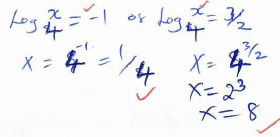 Log₄ˣ = -1 or Log₄ˣ = 3/2
x = 4⁻¹ = 1/4 x = 4^3/2
x = 2³
x = 8